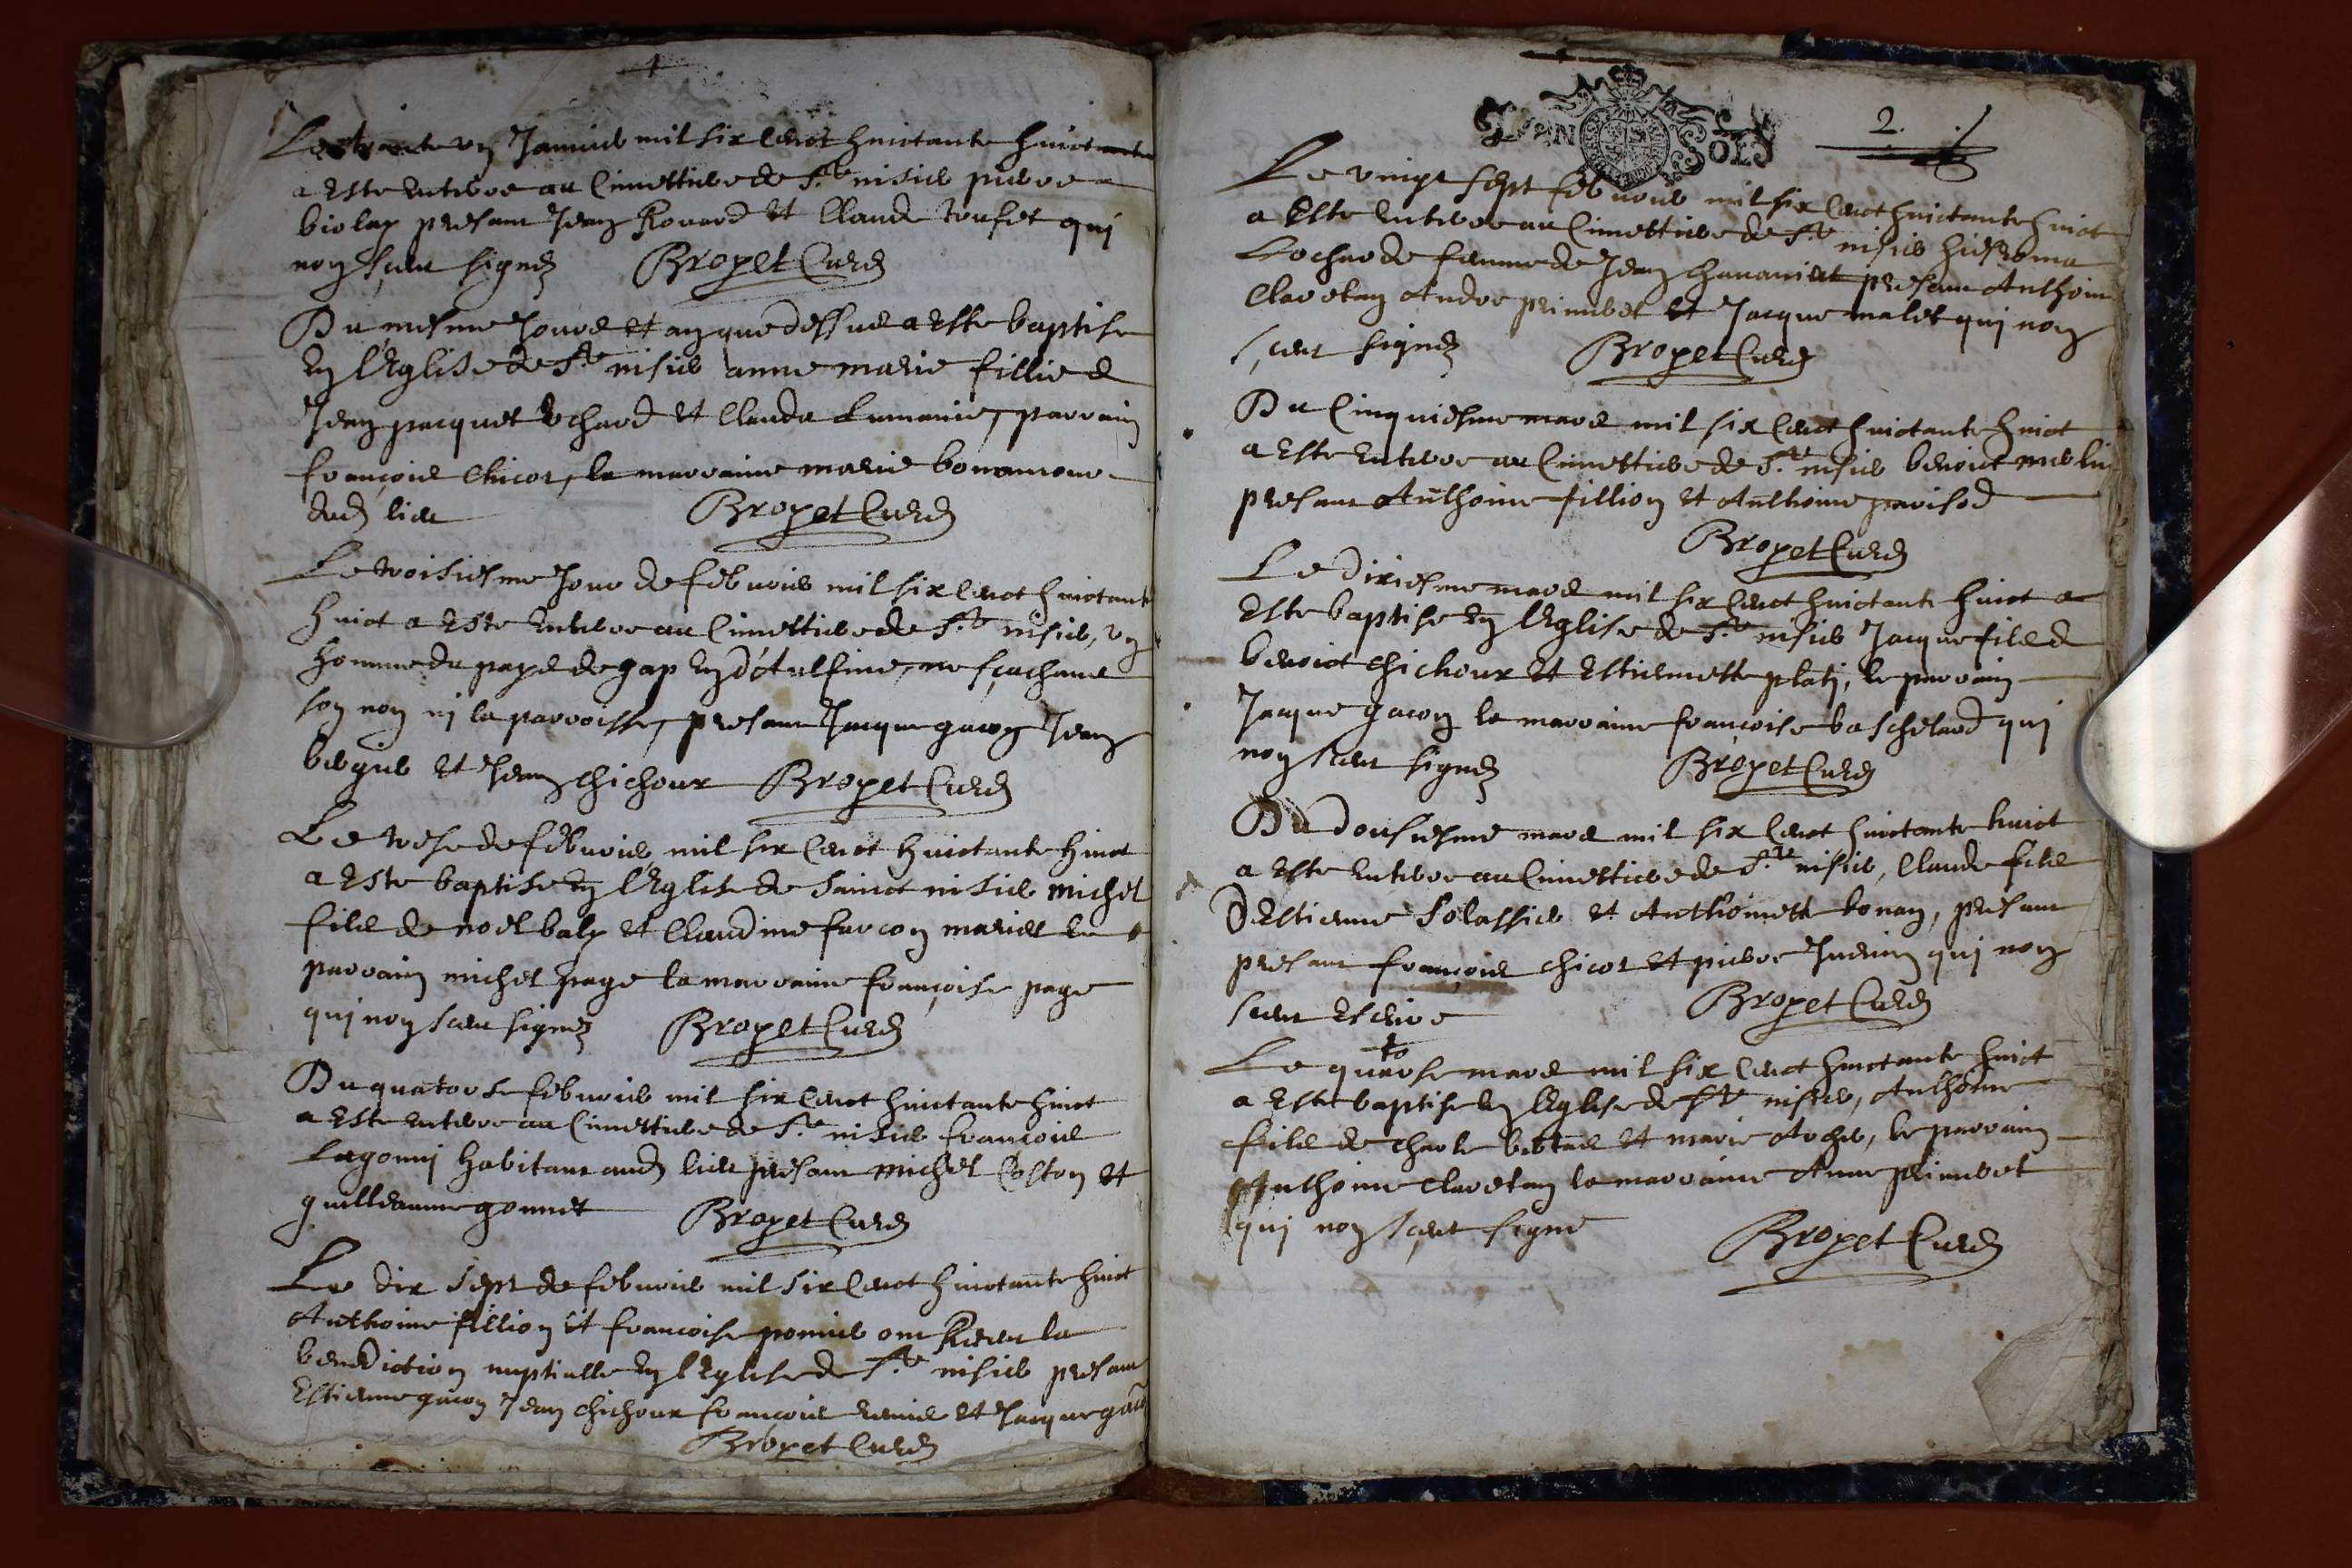 Le trante un Janvier mil six cent huictante huict
a esté enterre au Cimettiere de St nisier pierre
biolay presant Jean Rouard et Claude qui
non sceu signer Bropet Curé
Du mesme Jour et an que dessus a esté baptise
en l'Eglise de St nisier anne marie fillie de
Jean jacquet et Clauda parrain
françois chicot, la marraine marie bonamour
dud lieu Bropet Curé
Le troisiesme Jour de febvrier mil six cent huictante
huict a esté enterre au Cimettiere de St nisier, un
homme du paye de gap en ne sçachant
son non ni la parroisse, presant Jacque gacon Jean
bergier et Jean chichoux Bropet Curé
Le trese de febvrier mil six cent huictante huict
a esté baptise en l'Eglise de sainct nisier michel
fils de noel baly et Claudine farcon maries le
parrain michel page la marraine françoise page
qui non sceu signer Bropet Curé
Du quatorse febvrier mil six cent huictante huict
a esté enterre au Cimettiere de St nisier françois
Lagonni habitant aud lieu presant michel Coston et
guilleaume gonnet Bropet Curé
Le dix sept de febvrier mil six cent huictante huict
Anthoine fillion et francoise pomier ont Receu la
benediction nuptialle en l'Eglise de St nisier presant
Estienne gacon Jean chichoux francois et Jacque gacon
Bropet Curé
2.
SOLS
Le vingt sept febvrier mil six cent huictante huict
a esté enterre au Cimettiere de St nisier hieroma
Lochard femme de Jean presant Anthoine
Claretan Andre primbet et Jacque malet qui non
sçeut signer Bropet Curé
Du Cinquiesme mars mil six cent huictante huict
a esté enterre au Cimettiere de St nisier benoict merlin
presant Anthoine fillion et Anthoine parisod
Bropet Curé
Le dixiesme mars mil six cent huictante huict a
esté baptise en l'Eglise de St nisier Jacque fils de
benoict chichoux et Estiennette platj, le parrain
Jacque gacon la marraine françoise baschelard qui
non sceu signer Bropet Curé
Du dousiesme mars mil six cent huictante huict
a esté enterre au Cimettiere de St nisier, Claude fils
D'Estienne Solassier et Anthoinette bonan, presant
presant françois chicot et pierre Juenin qui non
sceu escrire Bropet Curé
Le quatorse mars mil six cent huictante huict
a esté baptise en l'Eglise de St nisier, Anthoine
fils de charle bertas et marie Archer, le parrain
Anthoine Claretan la marraine Anne primbet
qui non sçeut signe Bropet Curé